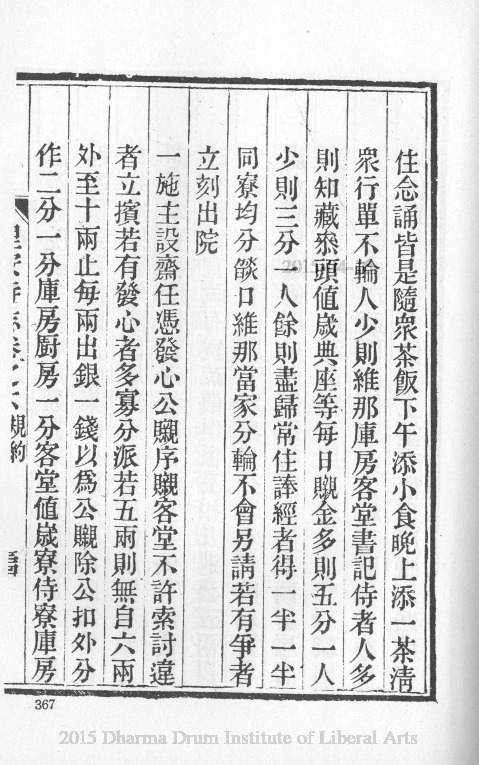 住念誦皆是隨衆茶飯下午添小食晚上添一茶淸
衆行單不輪人少則維那庫房客堂書記侍者人多
則知藏叅頭值嵗典座等每日䞋金多則五分一人
少則三分一人餘則盡歸常住諱經者得一半一半
同寮均分燄口維那當家分輪不會另請若有爭者
立刻出院
一施主設齋任憑發心公䞋序䞋客堂不許索討違
者立擯若有發心者多寡分派若五兩則無自六兩
外至十兩止每兩出銀一錢以爲公䞋除公扣外分
作二分一分庫房厨房一分客堂值嵗寮侍寮庫房
規約
367
2015 Dharma Drum Institute of Liberal Arts